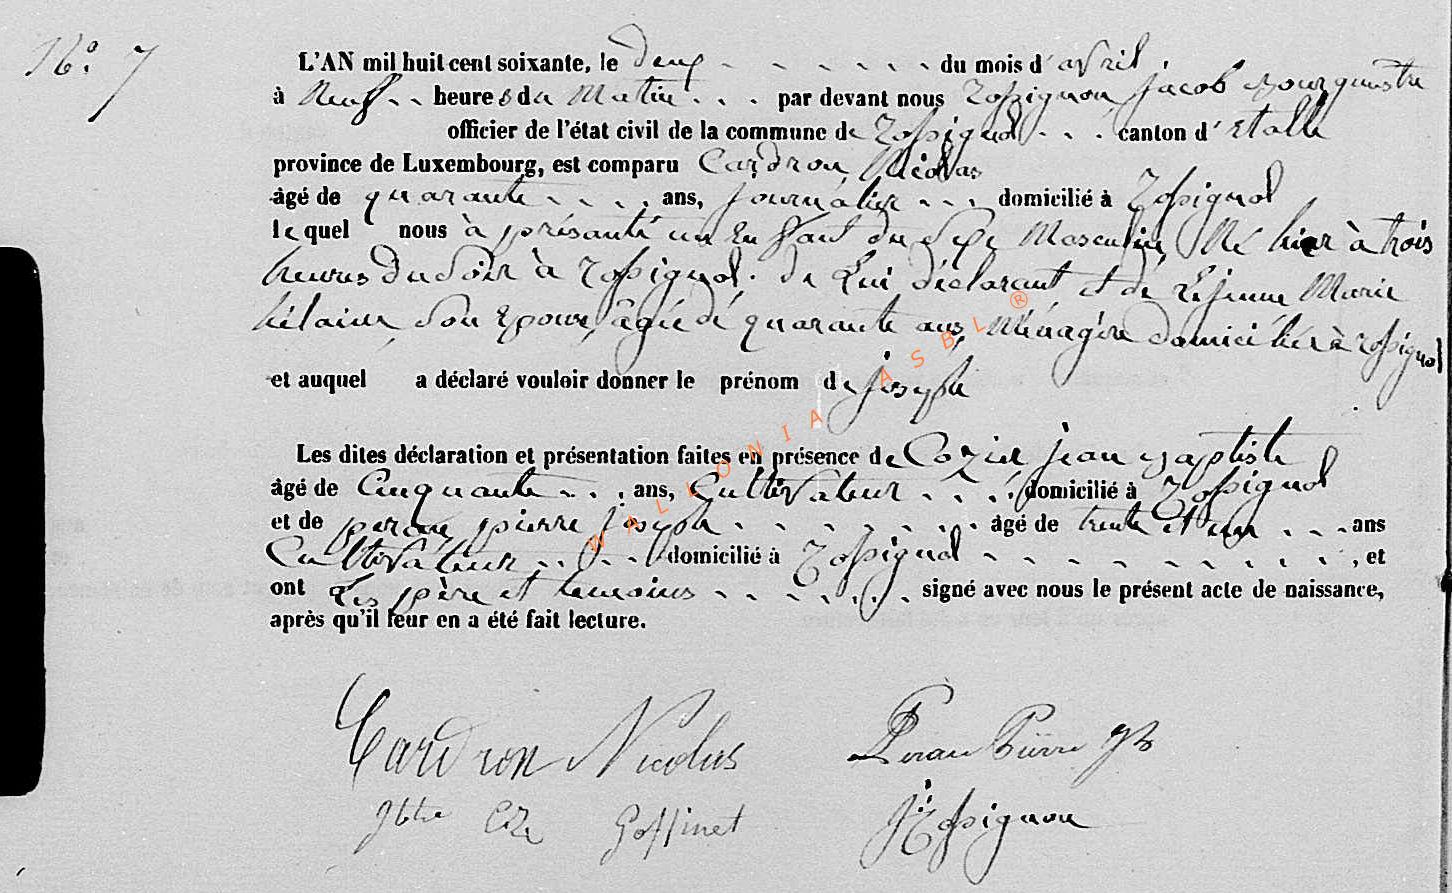 No. 7
L'AN mil huit cent soixante, le deux - - - - - - - du mois d'avril
à Neuf - - heures du Matin - - - par devant nous Rossignon jacob Bourgmestre
officier de l'état civil de la commune de Rossignol - - - canton d'Etalle
province de Luxembourg, est comparu Cardron Nicolas
âgé de quarante - - - - ans, journalier - - - domicilié à Rossignol
lequel nous à présanté un Enfant du Sexe Masculin, Né hier à trois
heures du Soir à Rossignol. de Lui déclarant et de Lejeune Marie
hélaine Son Epouse, âgée de quarante ans, Ménagère domiciliée à Rossignol
et auquel a déclaré vouloir donner le prénom de joseph
Les dites déclaration et présentation faites en présence de Cozier jean Baptiste
âgé de Cinquante - - - ans, Cultivateur - - - - domicilié à Rossignol
et de perau pierre joseph - - - - - - - - âgé de trente et un - - - ans
Cultivateur - - - - - domicilié à Rossignol - - - - - - - - - - , et
ont Les père et temoins - - - - - - signé avec nous le présent acte de naissance,
après qu'il leur en a été fait lecture.
WALLONIA ASBL ®
Cardron Nicolas Perau Pierre Jh
Goffinet JRossignon